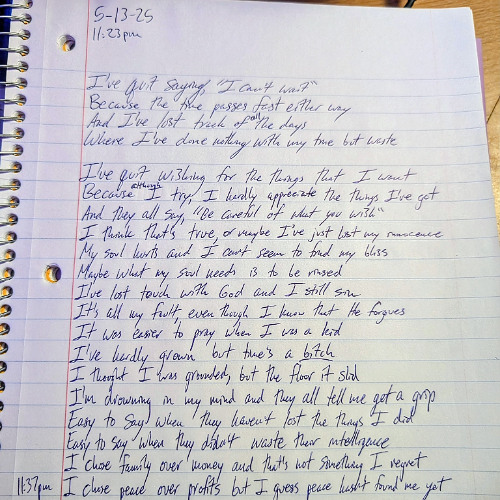 5-13-25
11:23pm
I've quit saying "I can't wait"
Because the time passes fast either way
And I've lost track of all the days
Where I've done nothing with my time but waste
I've quit wishing for the things that I want
Because although I try, I hardly appreciate the things I've got
And they all say, "Be careful of what you wish"
I think that's true, or maybe I've just lost my innocence
My soul hurts and I can't seem to find my bliss
Maybe what my soul needs is to be rinsed
I've lost touch with God and I still sin
It's all my fault, even though I know that He forgives
It was easier to pray when I was a kid
I've hardly grown but time's a bitch
I thought I was grounded, but the floor it slid
I'm drowning in my mind and they all tell me get a grip
Easy to say when they haven't lost the things I did
Easy to say when they didn't waste their intelligence
I chose family over money and that's not something I regret
11:37pm I chose peace over profits but I guess peace hasn't found me yet